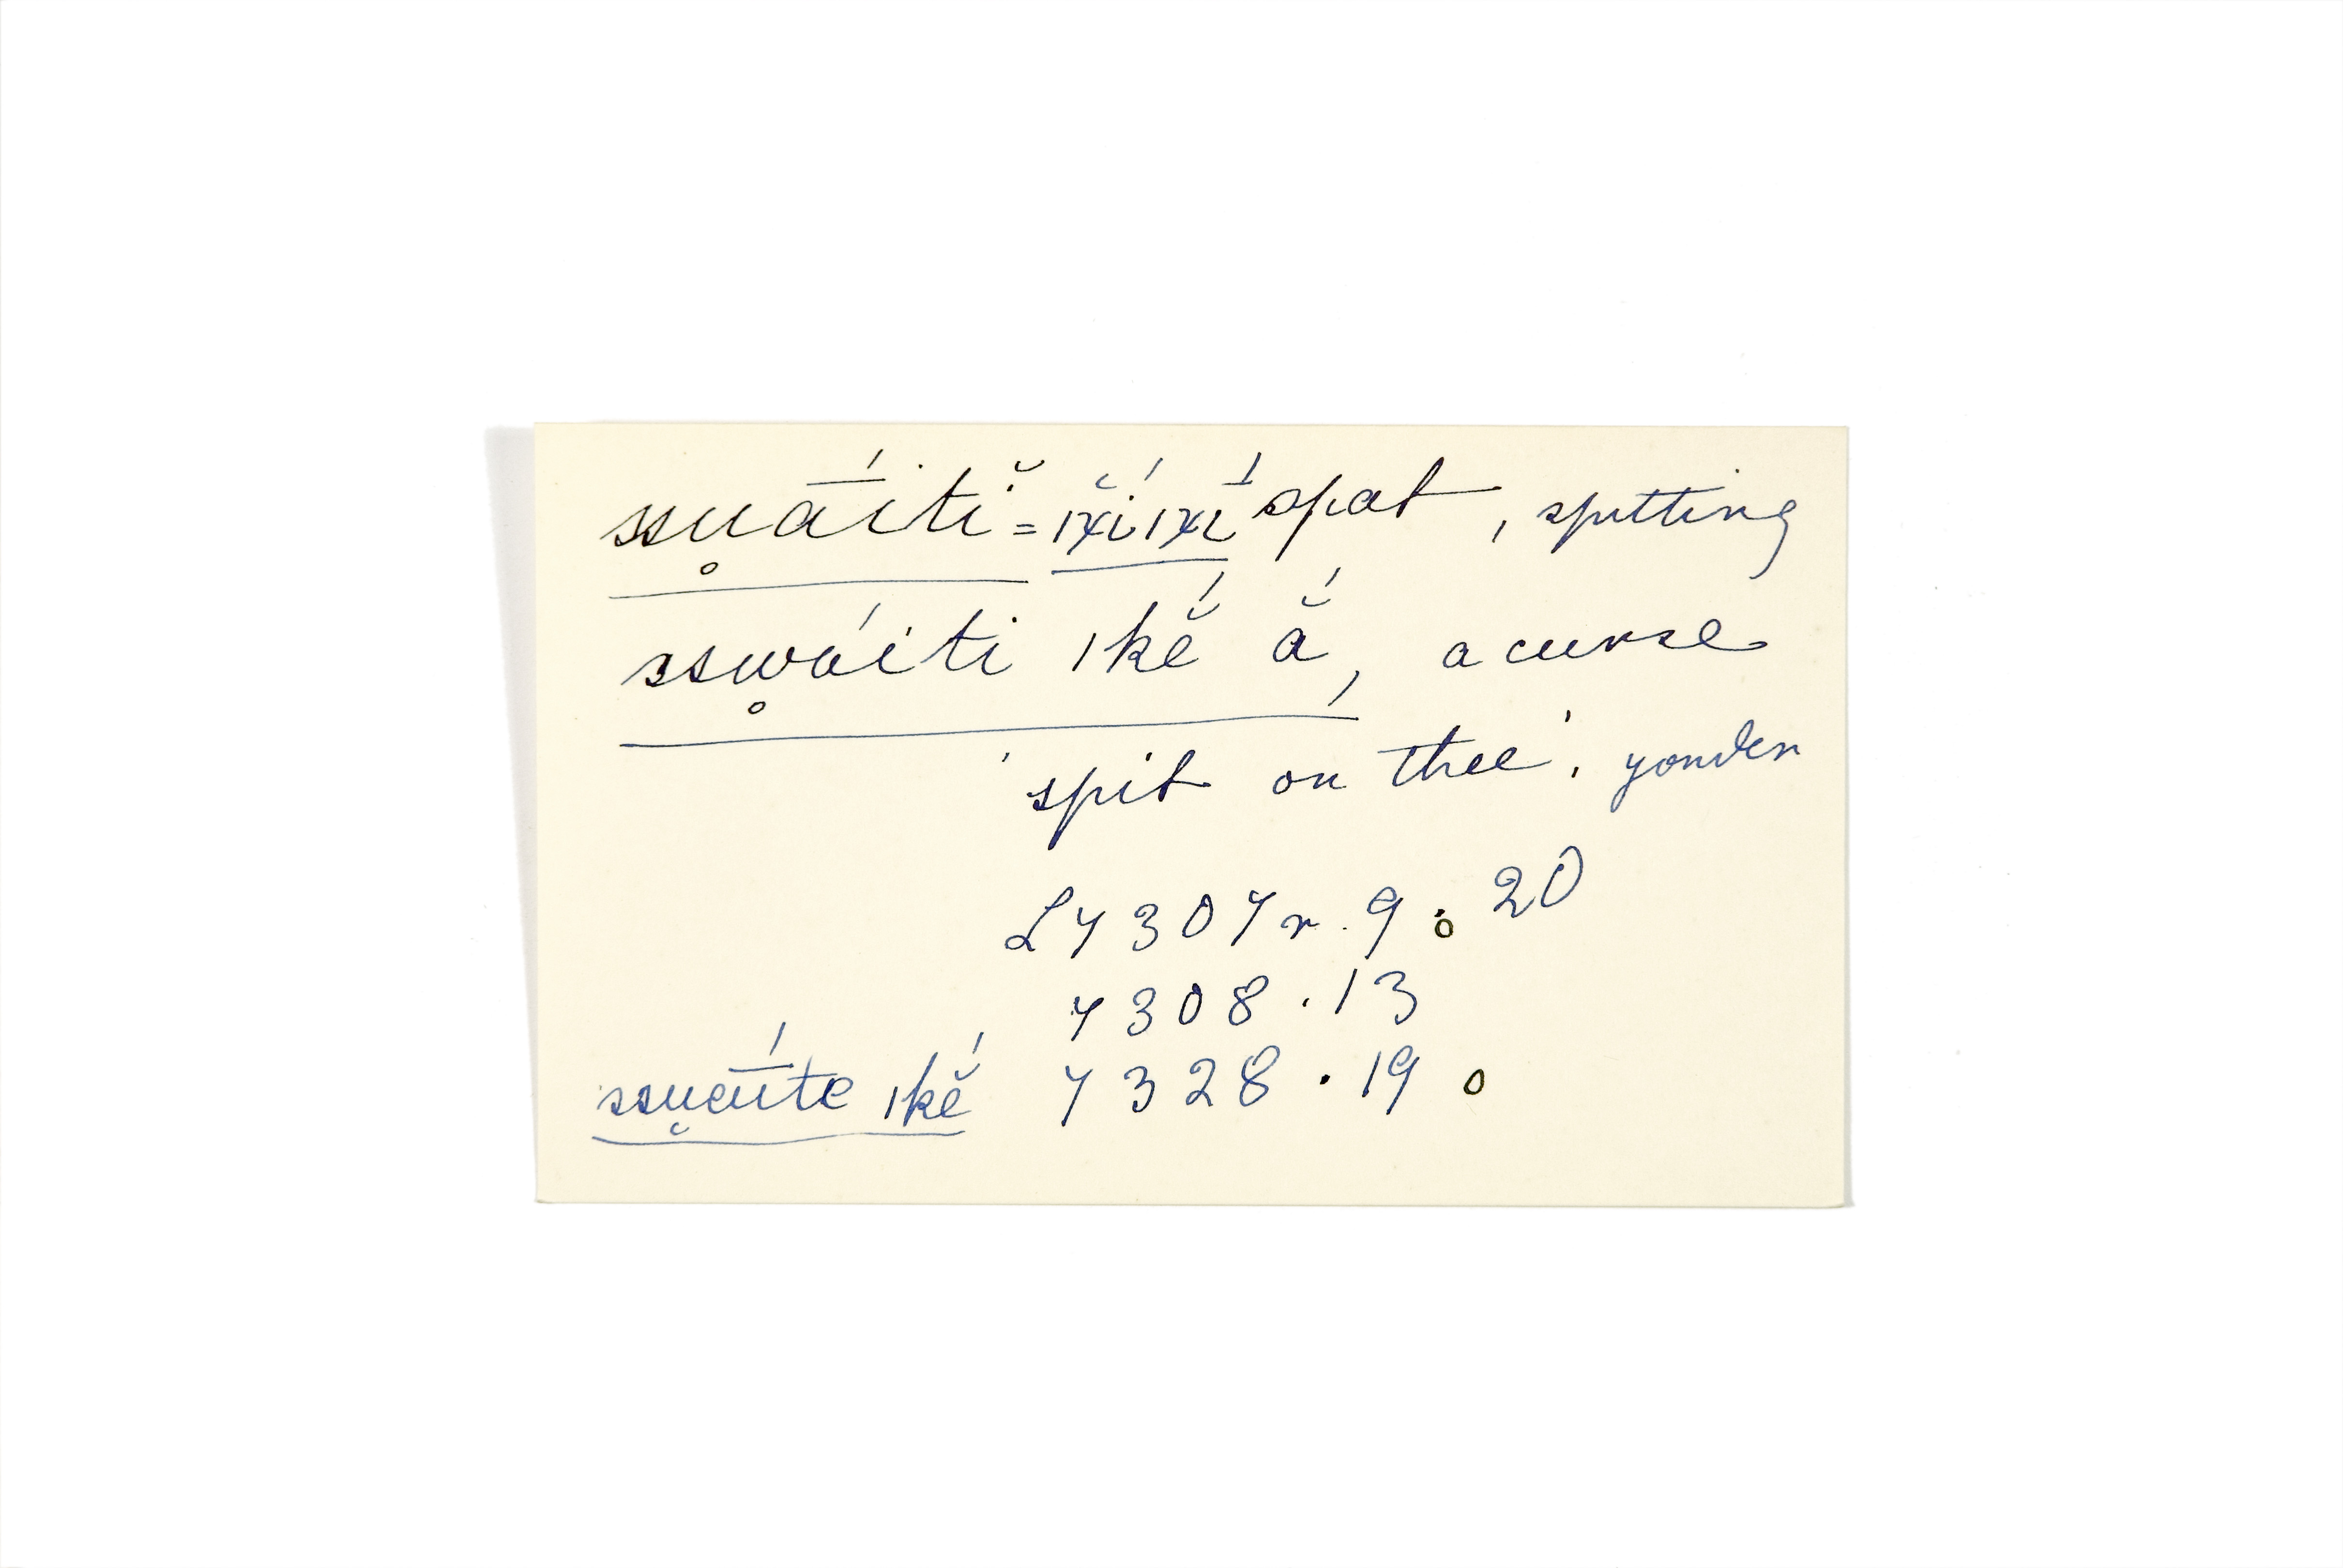 ssu̥ā́itĭ = ıχĭ́ıχı̄́ spat, spitting
ssw̥áiti ıkĕ́ ắ, a curse
'spit on thee', yonder
L 7307r. 9. 20
7308 . 13
ssu̥āíte ıkĕ́ 7328 . 19